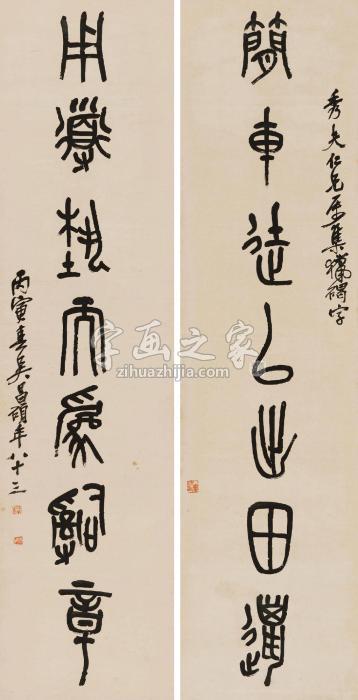 秀夫仁兄屬集獵碣字
簡車徒以出田邋
用導埶而為辭章
丙寅春吳昌碩年八十三
字画之家
zihuazhijia.com